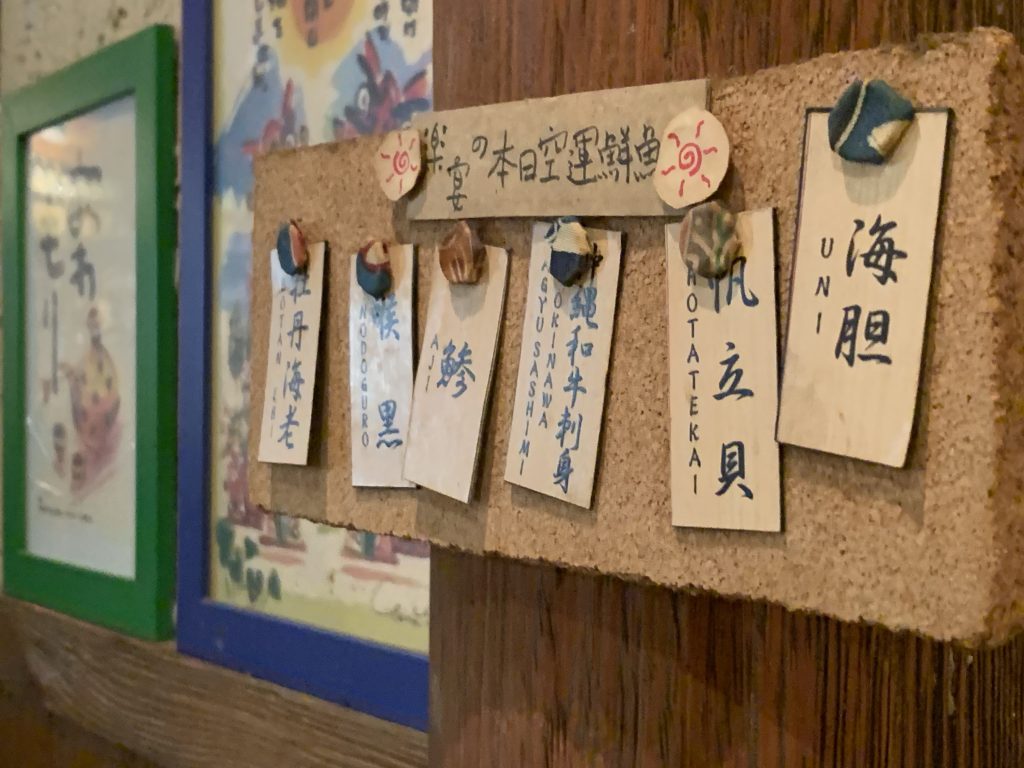 楽宴の本日空運鮮魚
牡丹海老
BOTAN EBI
喉黒
NODOGURO
鯵
AJI
沖縄和牛刺身
OKINAWA
WAGYU SASHIMI
帆立貝
HOTATEKAI
海胆
UNI